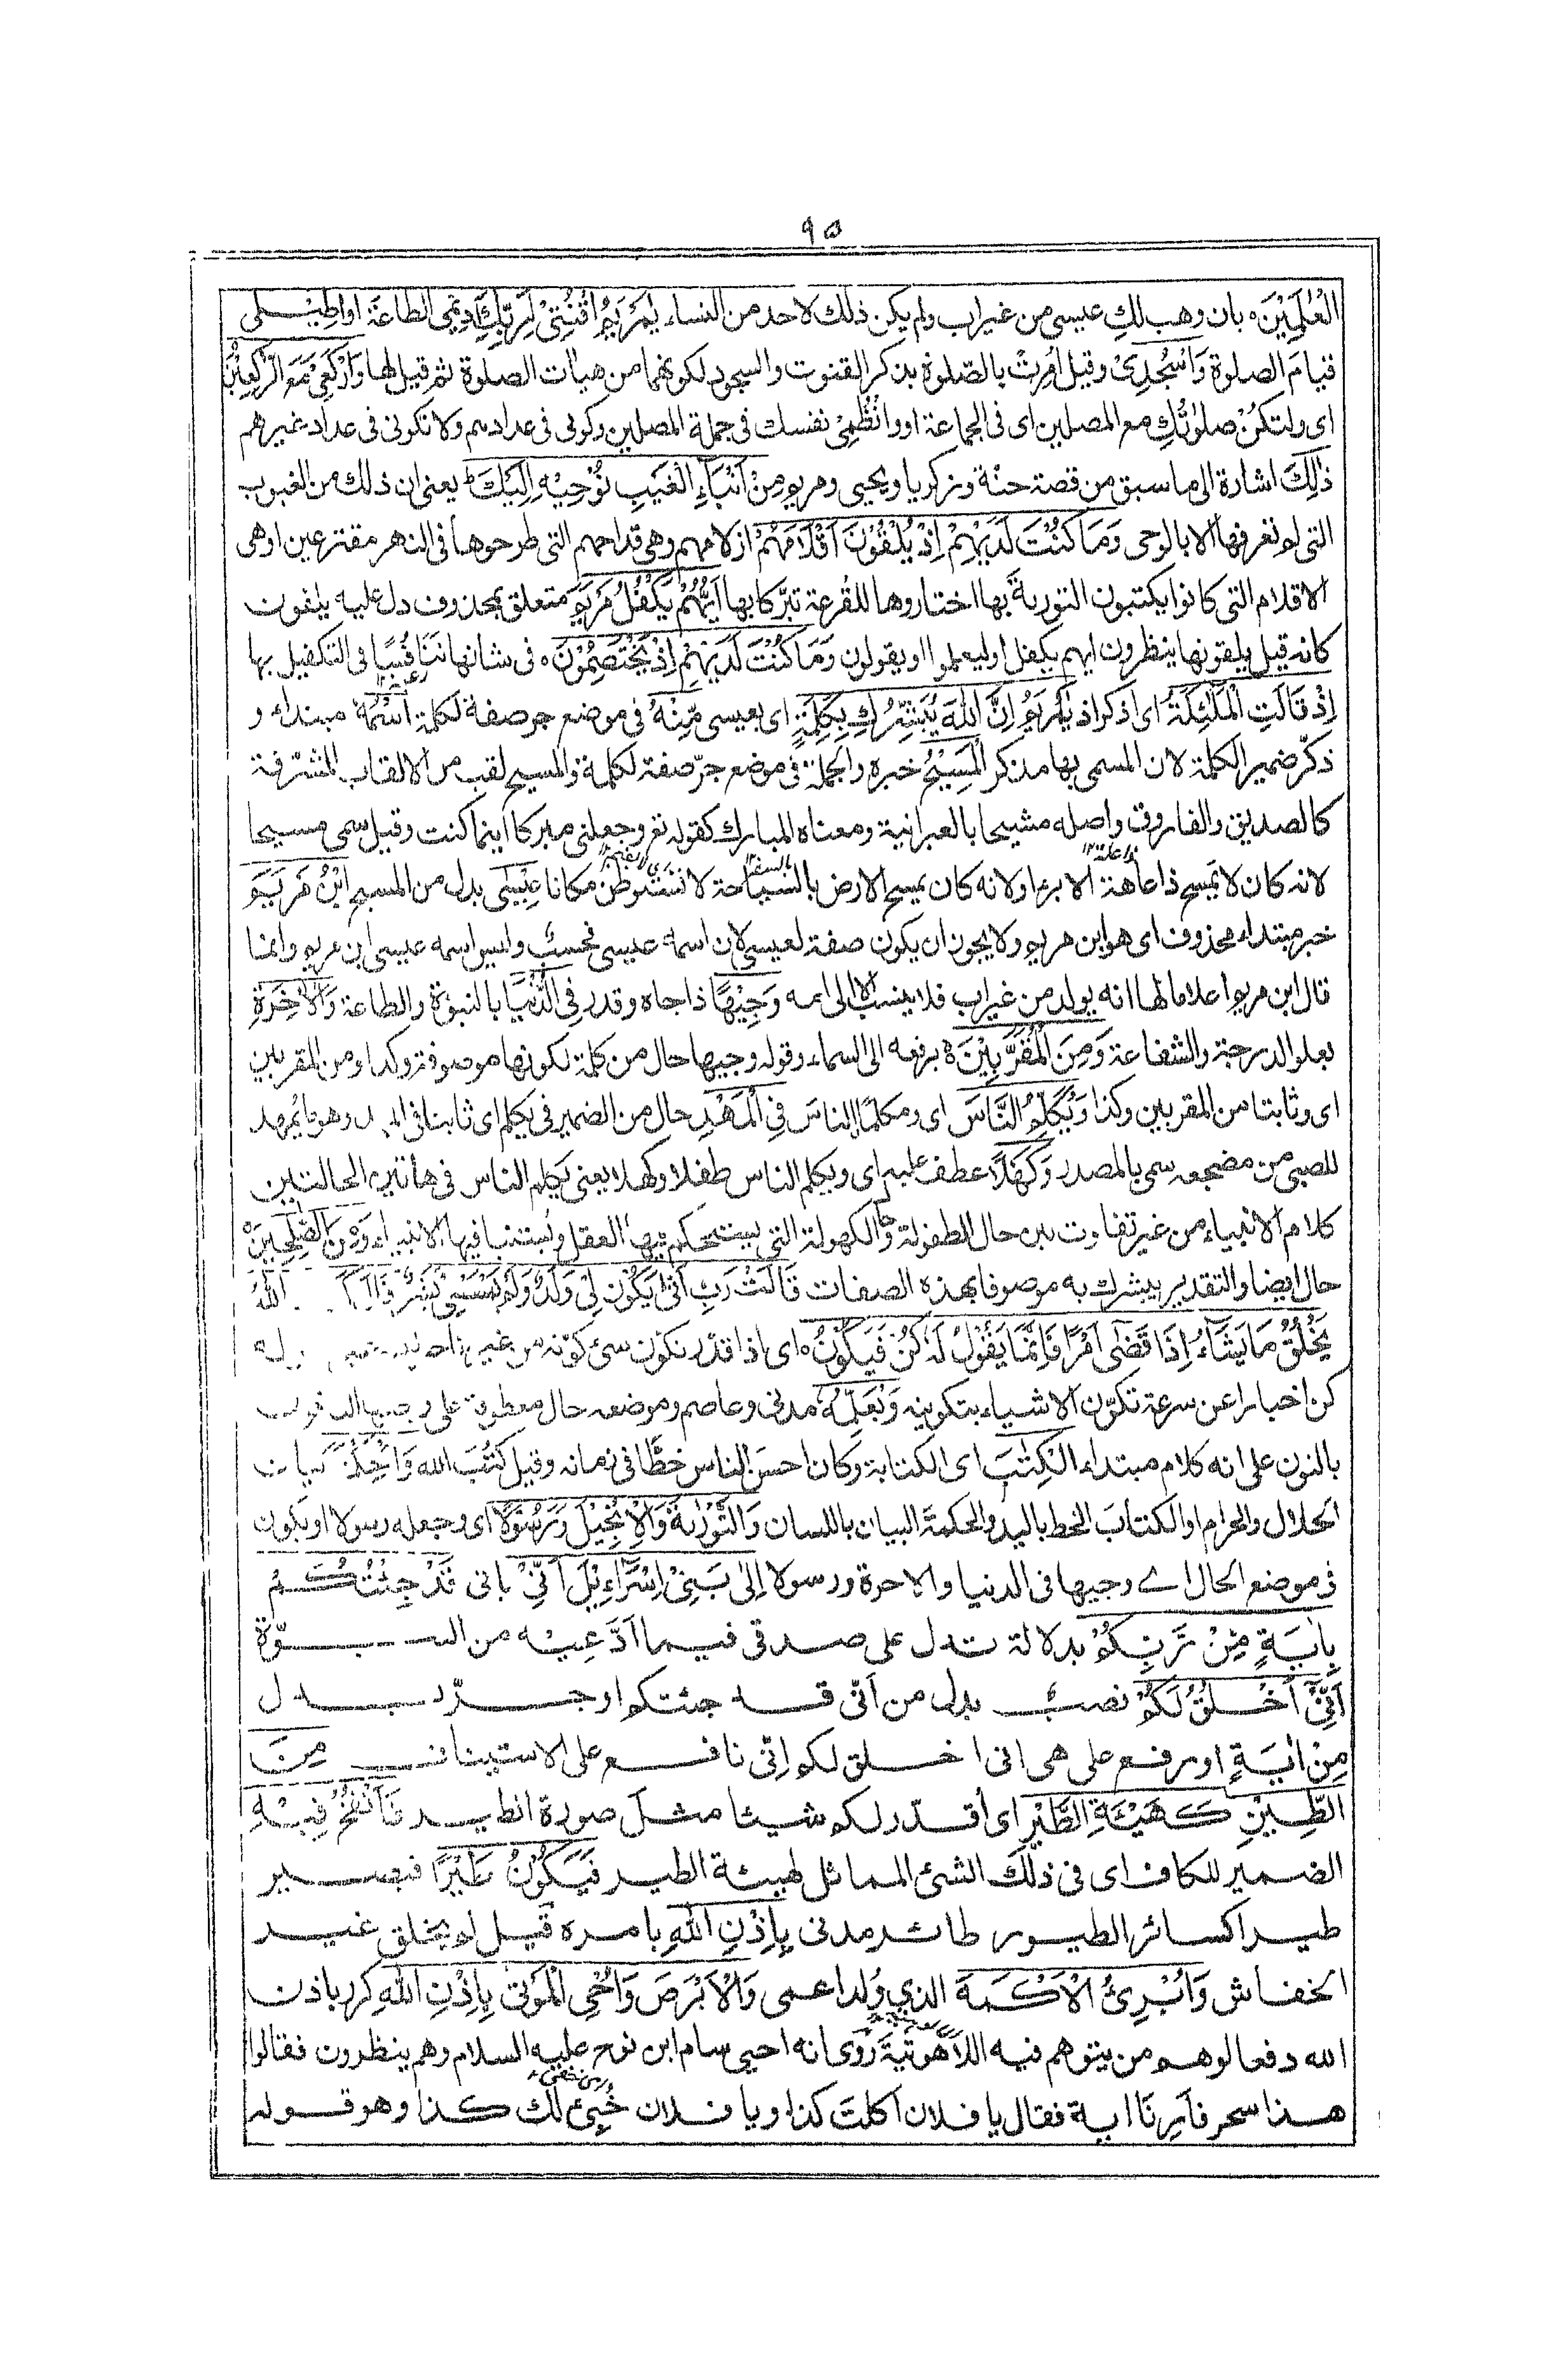 ٩٥
الْعٰلَمِيْنَ ه بان وهب لكِ عيسى من غير اب ولم يكن ذلك لاحد من النساء يٰمَرْيَمُ اقْنُتِيْ لِرَبِّكِ اديمى الطاعة او اطيـلى
قيامَ الصلوة وَاسْجُدِيْ وقيل اُمِرتْ بالصّلوة بذكر القنوت والسجود لكونهما من هيأت الصلوة ثم قيل لها وَارْكَعِيْ مَعَ الرّٰكِعِيْنَ
اى ولتكُنْ صلوتُكِ مع المصلين اى فى الجماعة او وانْظُمِىْ نفسك فى جملة المصلين وكونى فى عدادهم ولا تكونى فى عداد غيرهم
ذٰلِكَ اشارة الى ما سبق من قصة حنّة وزكريا ويحيى ومريم مِنْ اَنْۢبَآءِ الْغَيْبِ نُوْحِيْهِ اِلَيْكَ ط يعنى ان ذلك من الغيوب
التى لم تعرفها الا بالوحى وَمَا كُنْتَ لَدَيْهِمْ اِذْ يُلْقُوْنَ اَقْلَامَهُمْ ازلامهم وهى قداحهم التى طرحوها فى النهر مقترعين اوهى
الاقلام التى كانوا يكتبون التورية بها اختاروها للقُرعة تبرّكا بها اَيُّهُمْ يَكْفُلُ مَرْيَمَ متعلق بمحذوف دل عليه يلقون
كانه قيل يلقونها ينظرون ايهم يكفل او ليعلموا او يقولون وَمَا كُنْتَ لَدَيْهِمْ اِذْ يَخْتَصِمُوْنَ ه فى شانها تَنَافُسًا فى التكفيل بها
اِذْ قَالَتِ الْمَلٰٓئِكَةُ اى اذكر اذ يٰمَرْيَمُ اِنَّ اللّٰهَ يُبَشِّرُكِ بِكَلِمَةٍ اى بعيسى مِّنْهُ فى موضع جر صفة لكلمة اسْمُهُ مبتداء و
ذكّر ضمير الكلمة لان المسمى بها مذكر الْمَسِيْحُ خبره والجملة فى موضع جرّ صفة لكلمة والمسيح لقب من الالقاب المشرّفة
كالصديق والفاروق واصله مشيحا بالعبرانية ومعناه المبارك كقوله تعـ وجعلنى مبركا اينما كنت وقيل سمى مسيحا
لانه كان لا يمسح ذا عاهة الا برء او لانه كان يمسح الارض بالسياحة لا يستوطن مكانا عِيْسَى بدل من المسيح ابْنُ مَرْيَمَ
خبر مبتداء محذوف اى هو ابن مريم ولا يجوز ان يكون صفة لعيسى لان اسمه عيسى فحسبُ وليس اسمه عيسى ابن مريم وانما
قال ابن مريم اعلاما لها انه يولد من غير اب فلا ينسب الا الى امه وَجِيْهًا ذا جاه وقدر فِى الدُّنْيَا بالنبوّة والطاعة وَالْاٰخِرَةِ
بعلو الدرجة والشفاعة وَمِنَ الْمُقَرَّبِيْنَ ه برفعه الى السماء وقوله وجيها حال من كلمة لكونها موصوفة وكذا ومن المقربين
اى وثابتا من المقربين وكذا وَيُكَلِّمُ النَّاسَ اى ومكلمًا الناسَ فِى الْمَهْدِ حال من الضمير فى يكلم اى ثابتا فى وهو ما يُمهد
للصبى من مضجعه سمى بالمصدر وَكَهْلًا عطف عليه اى ويكلم الناس طفلا وكهلا يعنى يكلم الناس فى هاتين الحالتين
كلام الانبياء من غير تفاوت بين حال الطفولة وحال الكهولة التى يستحكم فيها العقل ويُستنبأ فيها الانبياء وَمِنَ الصّٰلِحِيْنَ ه
حال ايضا والتقدير يبشرك به موصوفا بهذه الصفات قَالَتْ رَبِّ اَنّٰى يَكُوْنُ لِىْ وَلَدٌ وَلَمْ يَمْسَسْنِىْ بَشَرٌ قَالَ اللّٰهُ
يَخْلُقُ مَا يَشَآءُ اِذَا قَضٰٓى اَمْرًا فَاِنَّمَا يَقُوْلُ لَهٗ كُنْ فَيَكُوْنُ ه اى اذا قدّر تكوّن شئ كوّنه من غير
كن اخبارا عن سرعة تكوّن الاشياء بتكوينه وَيُعَلِّمُهُ مدنى وعاصم وموضعه حال معطوفة على وجيها
بالنون على انه كلام مبتداء الْكِتٰبَ اى الكتابة وكان احسن الناس خطًّا فى زمانه وقيل كُتُبَ الله وَالْحِكْمَةَ بيان
الحلال والحرام او الكتابَ الخط باليد والحكمةَ البيان باللسان وَالتَّوْرٰىةَ وَالْاِنْجِيْلَ وَرَسُوْلًا اى وجعله رسولا او يكون
فى موضع الحال اے وجيها فى الدنيا والاخرة ورسولا اِلٰى بَنِىْ اِسْرَآءِيْلَ اَنِّىْ بانى قَدْ جِئْتُكُمْ
بِاٰيَةٍ مِّنْ رَّبِّكُمْ بدلالة تدل على صدقى فيما اَدّعيه من النبوّة
اَنِّىْٓ اَخْلُقُ لَكُمْ نصبٌ بدل من اَنّى قد جئتكم او جرّ بدل
مِنْ اٰيَةٍ او رفع على هى انى اخلق لكم اِنّى نافع على الاستيناف مِنَ
الطِّيْنِ كَهَيْئَةِ الطَّيْرِ اى اُقدّر لكم شيئا مثلَ صورة الطير فَاَنْفُخُ فِيْهِ
الضمير للكاف اى فى ذلك الشئ المماثل لهيئة الطير فَيَكُوْنُ طَيْرًا فيصير
طيرا كسائر الطيور طائر مدنى بِاِذْنِ اللّٰهِ بامره قيل لم يخلق غير
الخفاش وَاُبْرِئُ الْاَكْمَهَ الذى وُلد اعمى وَالْاَبْرَصَ وَاُحْىِ الْمَوْتٰى بِاِذْنِ اللّٰهِ كرر باذن
الله دفعا لوهم من يتوهم فيه اللاهوتية رُوى انه احيى سام ابن نوح عليه السلام وهم ينظرون فقالوا
هذا سحر فاَرِنَا اية فقال يا فلان اكلتَ كذا ويا فلان خُبِئَ لك كذا وهو قوله